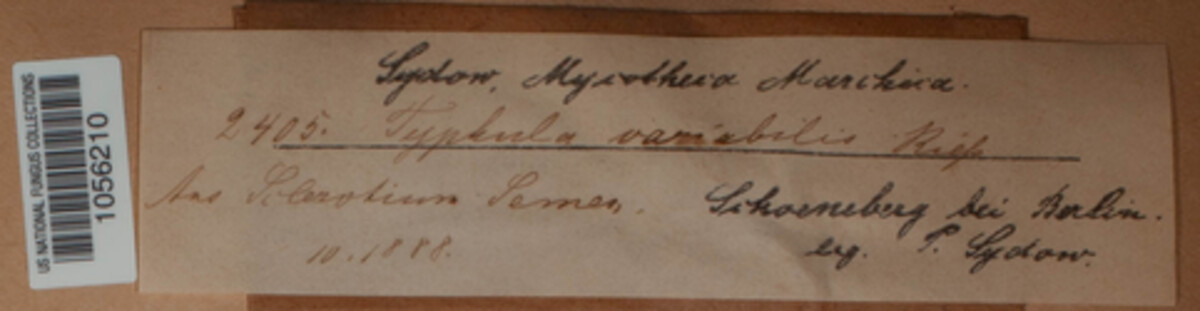 US NATIONAL FUNGUS COLLECTIONS
10562110
Sydow, Mycotheca Marchica.
2405. Typhula variabilis Riess
Aus Sclerotium Semen.
10.1888.
Schoeneberg bei Berlin.
leg. P. Sydow.